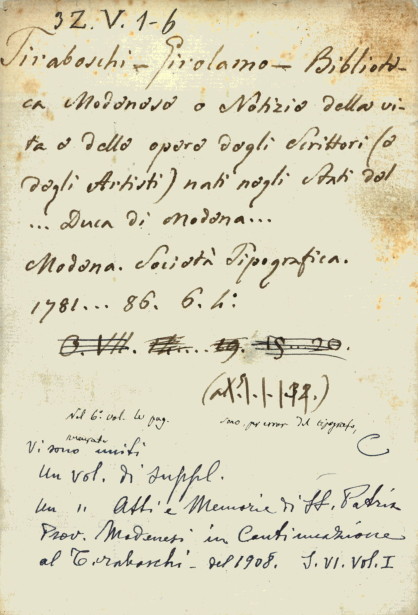 3Z. V. 1-6
Tiraboschi - Girolamo - Bibliote-
ca Modenese o Notizie della vi-
ta e delle opere degli Scrittori (e
degli Artisti) nati negli Stati del
... Duca di Modena...
Modena. Società Tipografica.
1781... 86. 6. 4º:
Nel 6º. vol. le pag. sono, per error del tipografo,
Vi sono uniti
un vol. di suppl.
un " Atti e Memorie di SS. Patria
Prov. Modenesi in Continuazione
al Tiraboschi - del 1908. S. VI. Vol. I